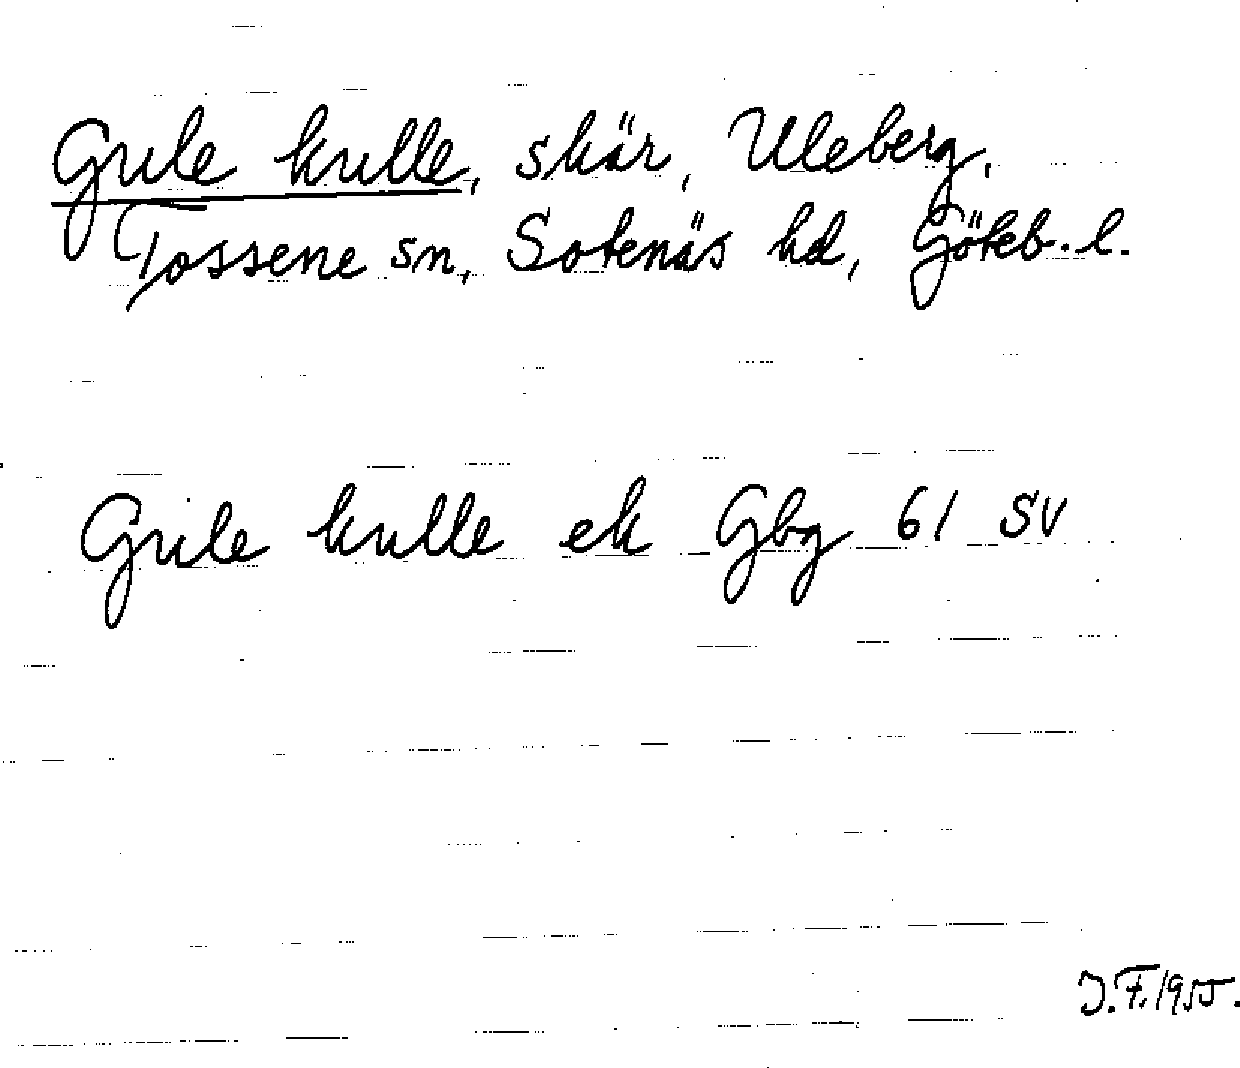 Gule kulle, skär, Uleberg,
Tossene sn, Sotenäs hd, Göteb. l.
Gule kulle ek Gbg 61 SV
J.F. 1955.